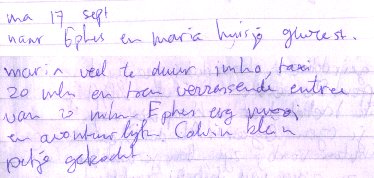 ma 17 sept
naar Ephes en maria huisje geweest.
maria veel te duur imho, taxi
20 mln en toen verrassende entree
van 20 mln. Ephes erg mooi
en avontuurlijk. Calvin klein
petje gekocht